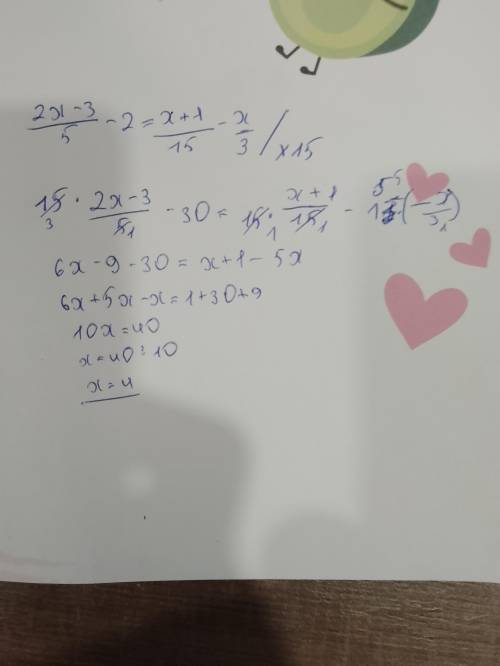 (2x-3)/5 - 2 = (x+1)/15 - x/3 / ×15
15 · (2x-3)/5 - 30 = 15 · (x+1)/15 - 15 (-x/3)
6x - 9 - 30 = x + 1 - 5x
6x + 5x - x = 1 + 30 + 9
10x = 40
x = 40 : 10
x = 4